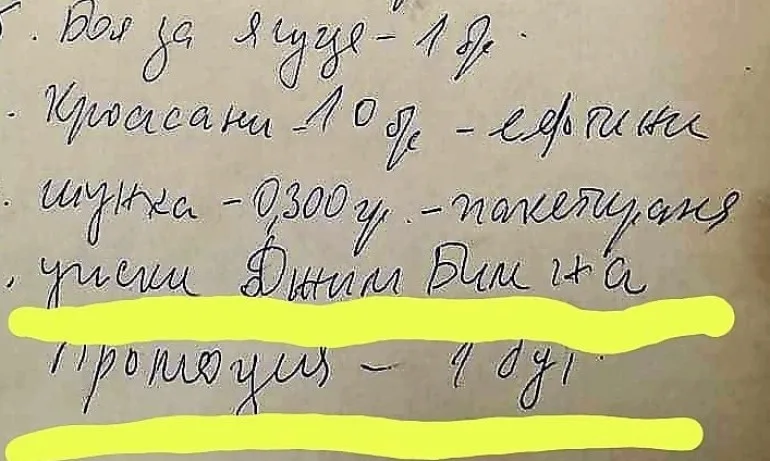 . Боя за яйца - 1 бр.
. Кроасани - 10 бр - ефтини
. шунка - 0,300 гр. - пакетирана
. уиски Джим Бим на
Промоция - 1 бут.